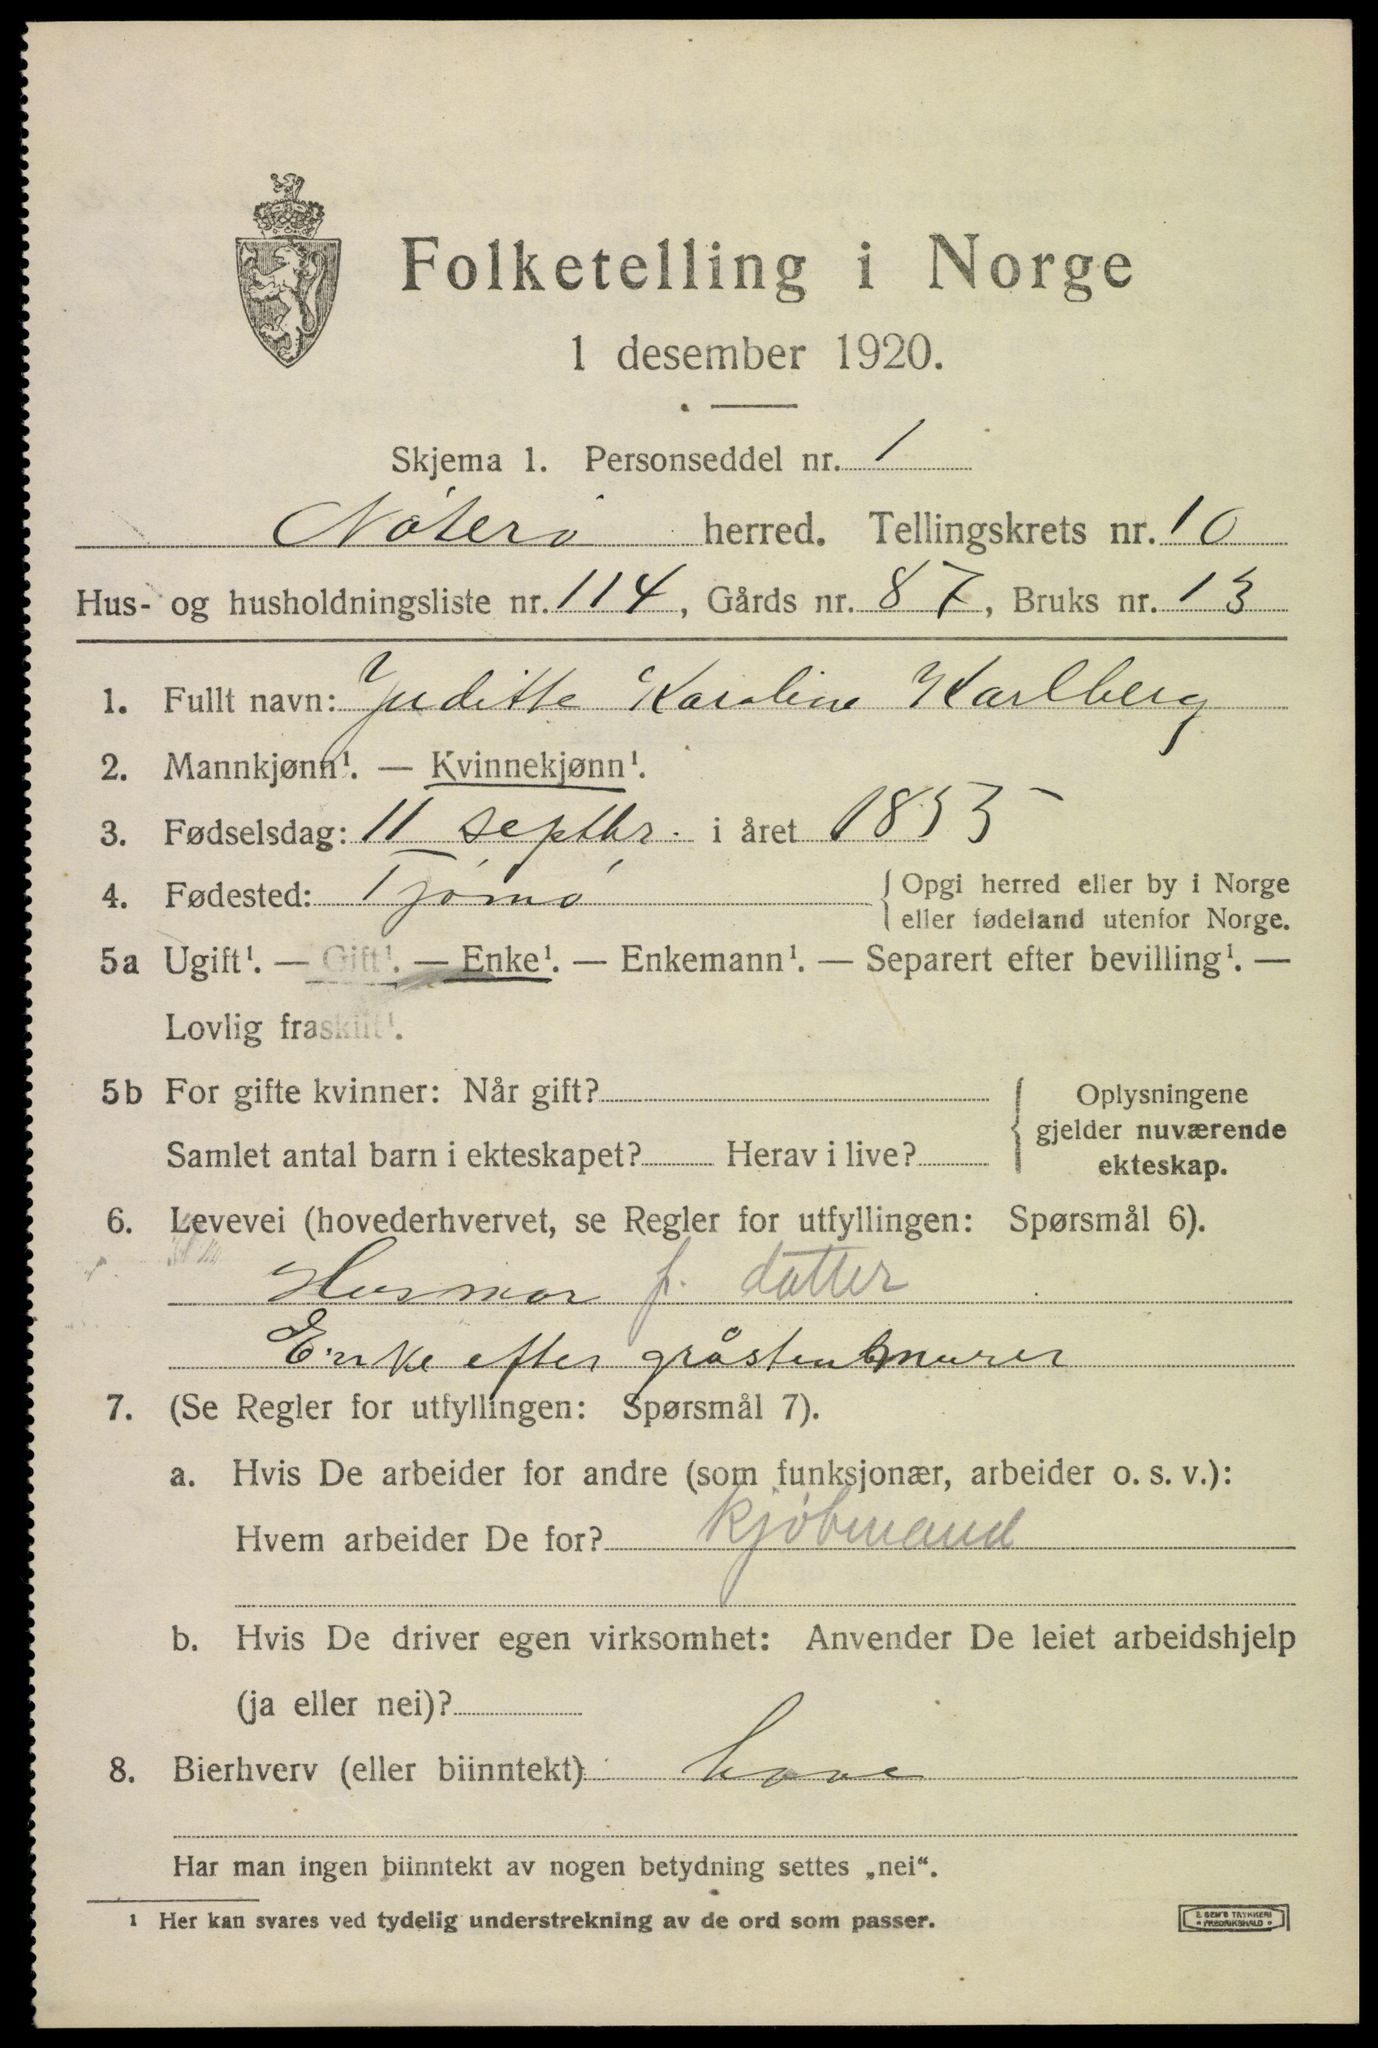 Folketelling i Norge
1 desember 1920.
Skjema 1. Personseddel nr. 1
Nøterø herred. Tellingskrets nr. 10
Hus- og husholdningsliste nr. 114, Gårds nr. 87, Bruks nr. 13
1. Fullt navn: Juditte Karoline Karlberg
2. Mannkjønn¹. — Kvinnekjønn¹.
3. Fødselsdag: 11 septbr. i året 1855
4. Fødested: Tjømø { Opgi herred eller by i Norge
eller fødeland utenfor Norge.
5a Ugift¹. — Gift¹. — Enke¹. — Enkemann¹. — Separert efter bevilling¹. —
Lovlig fraskilt¹.
5b For gifte kvinner: Når gift?
Samlet antal barn i ekteskapet? Herav i live?
{ Oplysningene
gjelder nuværende
ekteskap.
6. Levevei (hovederhvervet, se Regler for utfyllingen: Spørsmål 6).
Husmor f. datter
Enke efter gråstensmurer
7. (Se Regler for utfyllingen: Spørsmål 7).
a. Hvis De arbeider for andre (som funksjonær, arbeider o. s. v.):
Hvem arbeider De for? kjøbmand
b. Hvis De driver egen virksomhet: Anvender De leiet arbeidshjelp
(ja eller nei)?
8. Bierhverv (eller biinntekt)
Har man ingen biinntekt av nogen betydning settes „nei“.
¹ Her kan svares ved tydelig understrekning av de ord som passer.
E SEM'S TRYKKERI
FREDRIKSHALD